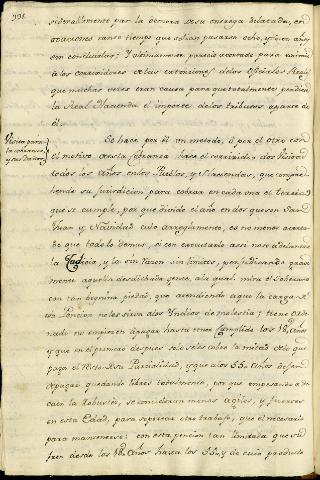 siderablemente por la demora de su entrega dilatada, en
ocaciones tanto tiempo que solian pasarse ocho, y diez años
sin conseguirlas; y ultimamente parecio acertado para
á los corregidores delas extorciones delos oficiales Reales
que muchas veces eran causa para que totalmente perdiese
la Real Hacienda el importe delos tributos aparte de
él.
Visita para
la cobranza
y sus daños
Se hace por él un metodo, ó por el otro con
el motivo desta cobranza hace el corregidor dos Visitas
todos los años en los Pueblos, y Haciendas, que compre-
hende su Jurisdicion para cobrar en cada una el tercio
que se cumple, por que divide el año en dos que son San
Juan y Navidad cuio arreglamento, es no menos acerta-
do que todo lo demas, si con executarlo assi no se adelantase
la Codicia, y la sin razon sin limites, perjudicando grave
mente aquella desdichada gente, ala qual mira el Soberano
con tan benigna piedad, que atendiendo aque la carga de
un Pencion no les sirva alos Yndios de molestia; tiene orde
nado no empiecen apagar hasta tener cumplido los 18 años
y que en el primero despues solo seles cobre la mitad delo que
paga el resto desu Parcialidad, y que alos 55 años dejen
de pagar quedando libres totalmente, por que empesando á de
caer la Robustes, se consideran menos agiles, y fuertes
en esta Edad, para soportar otro trabajo, que el necesario
para mantenerse: con esta pencion tan limitada que su
fren desde los 18 años hasta los 55, y de cuio producto